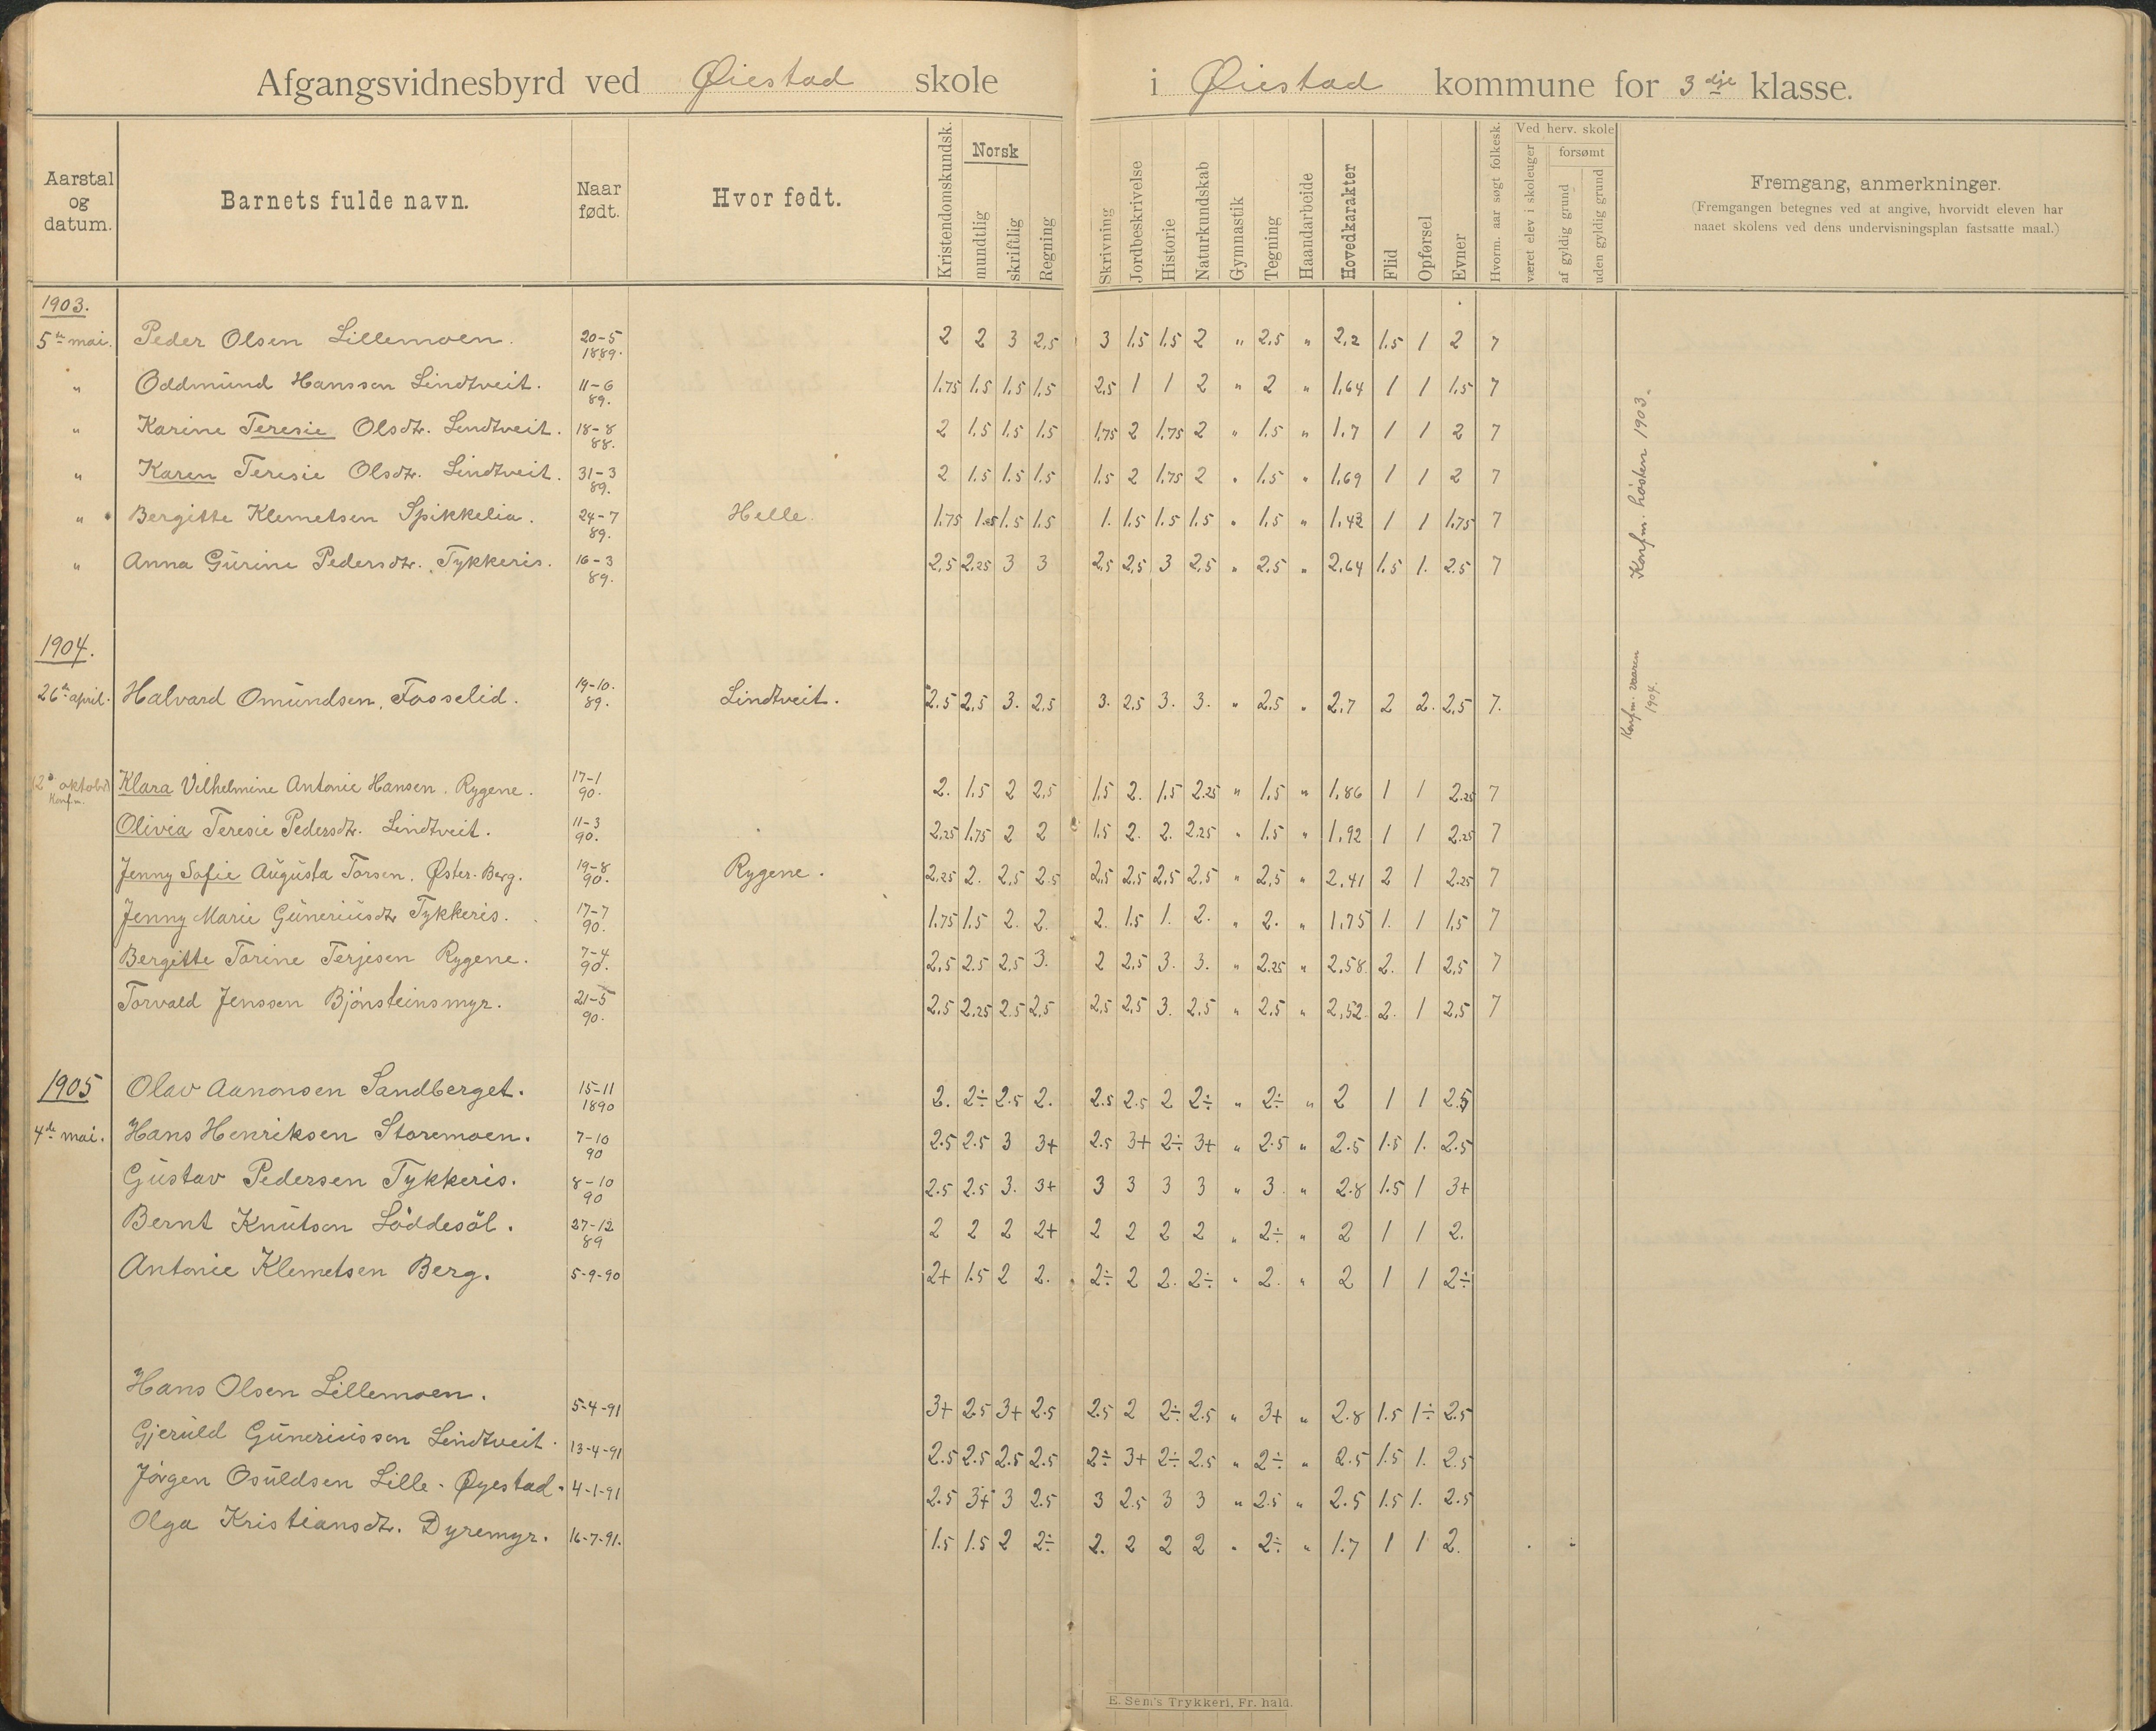 Afgangsvidnesbyrd ved Øiestad skole i Øiestad kommune for 3dje klasse.
Aarstal og datum.
Barnets fulde navn.
Naar født.
Hvor født.
Kristendomskundsk.
Norsk
mundtlig
skriftlig
Regning
Skrivning
Jordbeskrivelse
Historie
Naturkundskab
Gymnastik
Tegning
Haandarbeide
Hovedkarakter
Flid
Opførsel
Evner
Hvorm. aar søgt folkesk.
Ved herv. skole
været elev i skoleuger
forsømt
af gyldig grund
uden gyldig grund
Fremgang, anmerkninger.
(Fremgangen betegnes ved at angive, hvorvidt eleven har
naaet skolens ved dens undervisningsplan fastsatte maal.)
1903.
5te mai. Peder Olsen Lillemoen. 20-5 1889. 2 2 3 2,5 3 1.5 1.5 2 " 2,5 " 2,2 1.5 1 2 7
" Oddmund Hanssen Lindtveit. 11-6 89. 1.75 1.5 1.5 1.5 2.5 1 1 2 " 2 " 1.64 1 1 1.5 7
" Karine Teresie Olsdtr. Lindtveit. 18-8 88. 2 1.5 1.5 1.5 1.75 2 1.75 2 " 1.5 " 1.7 1 1 2 7
" Karen Teresie Olsdtr. Lindtveit. 31-3 89. 2 1.5 1.5 1.5 1.5 2 1.75 2 " 1.5 " 1.69 1 1 2 7
" Bergitte Klemetsen Spikkelia. 24-7 89. Helle. 1.75 1.5 1.5 1. 1.5 1.5 1.5 " 1.5 " 1.43 1 1 1.75 7
" Anna Gurine Pedersdtr. Tykkeris. 16-3 89. 2,5 2.25 3 3 2.5 2,5 3 2,5 " 2.5 " 2,64 1.5 1. 2.5 7
Konfm. høsten 1903.
1904.
26te april. Halvard Omundsen, Fosselid. 19-10. 89. Lindtveit. 2.5 2,5 3. 2,5 3. 2,5 3. 3. " 2,5 " 2,7 2 2. 2,5 7.
Konfm. vaaren 1904.
oktober Konfm. Klara Vilhelmine Antonie Hansen. Rygene. 17-1 90. 2. 1.5 2 2,5 1.5 2. 1.5 2.25 " 1.5 " 1.86 1 1 2.25 7
Olivia Teresie Pedersdtr. Lindtveit. 11-3 90. 2,25 1.75 2 2 1.5 2. 2. 2.25 " 1.5 " 1.92 1 1 2.25 7
Jenny Sofie Augusta Torsen. Øster-Berg. 19-8 90. Rygene. 2,25 2. 2,5 2.5 2,5 2,5 2,5 2,5 " 2,5 " 2,41 2 1 2.25 7
Jenny Marie Guneriusdtr Tykkeris. 17-7 90. 1.75 1.5 2. 2. 2. 1.5 1. 2. " 2. " 1.75 1. 1 1,5 7
Bergitte Torine Terjesen Rygene. 7-4 90. 2,5 2.5 2,5 3. 2 2,5 3. 3. " 2.25 " 2.58. 2. 1 2,5 7
Torvald Jenssen Bjönsteinsmyr. 21-5 90. 2.5 2.25 2.5 2,5 2,5 2,5 3. 2,5 " 2,5 " 2,52. 2. 1 2,5 7
1905 Olav Aanonsen Sandberget. 15-11 1890 2. 2÷ 2.5 2. 2.5 2.5 2 2÷ " 2÷ " 2 1 1 2.5
4de mai. Hans Henriksen Storemoen. 7-10 90 2.5 2.5 3 3+ 2.5 3+ 2÷ 3+ " 2.5 " 2.5 1.5 1. 2.5
Gustav Pedersen Tykkeris. 8-10 90 2.5 2.5 3. 3+ 3 3 3 3 " 3. " 2.8 1.5 1 3+
Bernt Knutsen Löddesöl. 27-12 89 2 2 2 2+ 2 2 2 2 " 2÷ " 2 1 1 2.
Antonie Klemetsen Berg. 5-9-90 2+ 1.5 2 2. 2÷ 2 2. 2÷ " 2. " 2 1 1 2÷
Hans Olsen Lillemoen. 5-4-91 3+ 2.5 3+ 2.5 2.5 2 2÷ 2.5 " 3+ " 2.8 1.5 1÷ 2.5
Gjeruld Guneriussen Lindtveit. 13-4-91 2.5 2.5 2.5 2.5 2÷ 3+ 2÷ 2.5 " 2÷ " 2.5 1.5 1. 2.5
Jörgen Osuldsen Lille-Øyestad. 4-1-91 2.5 3+ 3 2.5 3 2.5 3 3 " 2.5 " 2.5 1.5 1. 2.5
Olga Kristiansdtr. Dyremyr. 16-7-91. 1.5 1.5 2 2÷ 2. 2 2 2 " 2÷ " 1.7 1 1 2.
E. Sem's Trykkeri, Fr. hald.